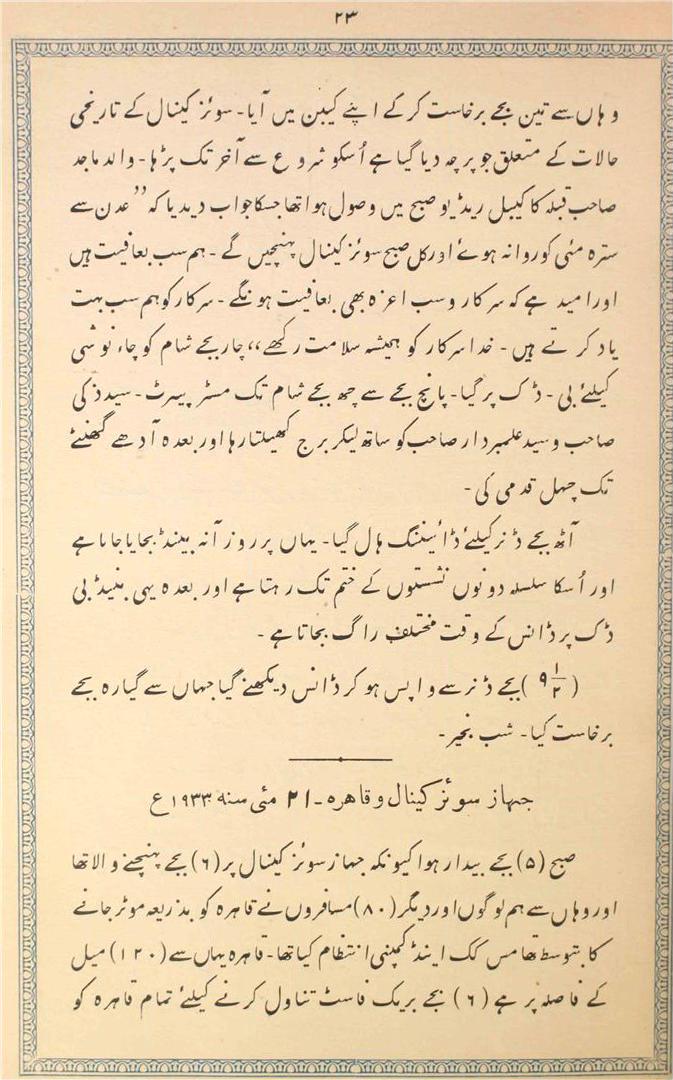 ۲۳
وہاں سے تین بجے برخاست کرکے اپنے کیبن میں آیا۔ سوئز کینال کے تاریخی
حالات کے متعلق جو پرچہ دیا گیا ہے اُسکو شروع سے آخر تک پڑہا۔ والد ماجد
صاحب قبلہ کا کیبل ریڈیو صبح میں وصول ہوا تھا جسکا جواب دیدیا کہ ’’عدن سے
سترہ مئی کو روانہ ہوئے اور کل صبح سوئز کینال پہنچیں گے۔ ہم سب بعافیت ہیں
اور امید ہے کہ سرکار و سب اعزہ بھی بعافیت ہونگے۔ سرکار کو ہم سب بہت
یاد کرتے ہیں۔ خدا سرکار کو ہمیشہ سلامت رکھے،، چار بجے شام کو چاء نوشی
کیلئے بی۔ ڈک پر گیا۔ پانچ بجے سے چھ بجے شام تک مسٹر پیسرٹ۔ سید ذکی
صاحب و سید علمبردار صاحب کو ساتھ لیکر برج کھیلتا رہا اور بعدہ آدھے گھنٹے
تک چہل قدمی کی۔
آٹھ بجے ڈنر کیلئے ڈائیننگ ہال گیا۔ یہاں پر روزآنہ بینڈ بجایا جاتا ہے
اور اُسکا سلسلہ دونوں نشستوں کے ختم تک رہتا ہے اور بعدہ یہی بنیڈ بی
ڈک پر ڈانس کے وقت مختلف راگ بجاتا ہے۔
(۹ ۱/۲) بجے ڈنر سے واپس ہوکر ڈانس دیکھنے گیا جہاں سے گیارہ بجے
برخاست کیا۔ شب بخیر۔
جہاز سوئز کینال و قاہرہ۔ ۲۱ مئی سنہ ۱۹۳۳ ع
صبح (۵) بجے بیدار ہوا کیونکہ جہاز سوئز کینال پر (۶) بجے پہنچنے والا تھا
اور وہاں سے ہم لوگوں اور دیگر (۸۰) مسافروں نے قاہرہ کو بذریعہ موٹر جانے
کا بتوسط تھامس کک اینڈ کمپنی انتظام کیا تھا۔ قاہرہ یہاں سے (۱۲۰) میل
کے فاصلہ پر ہے (۶) بجے بریک فاسٹ تناول کرنے کیلئے تمام قاہرہ کو